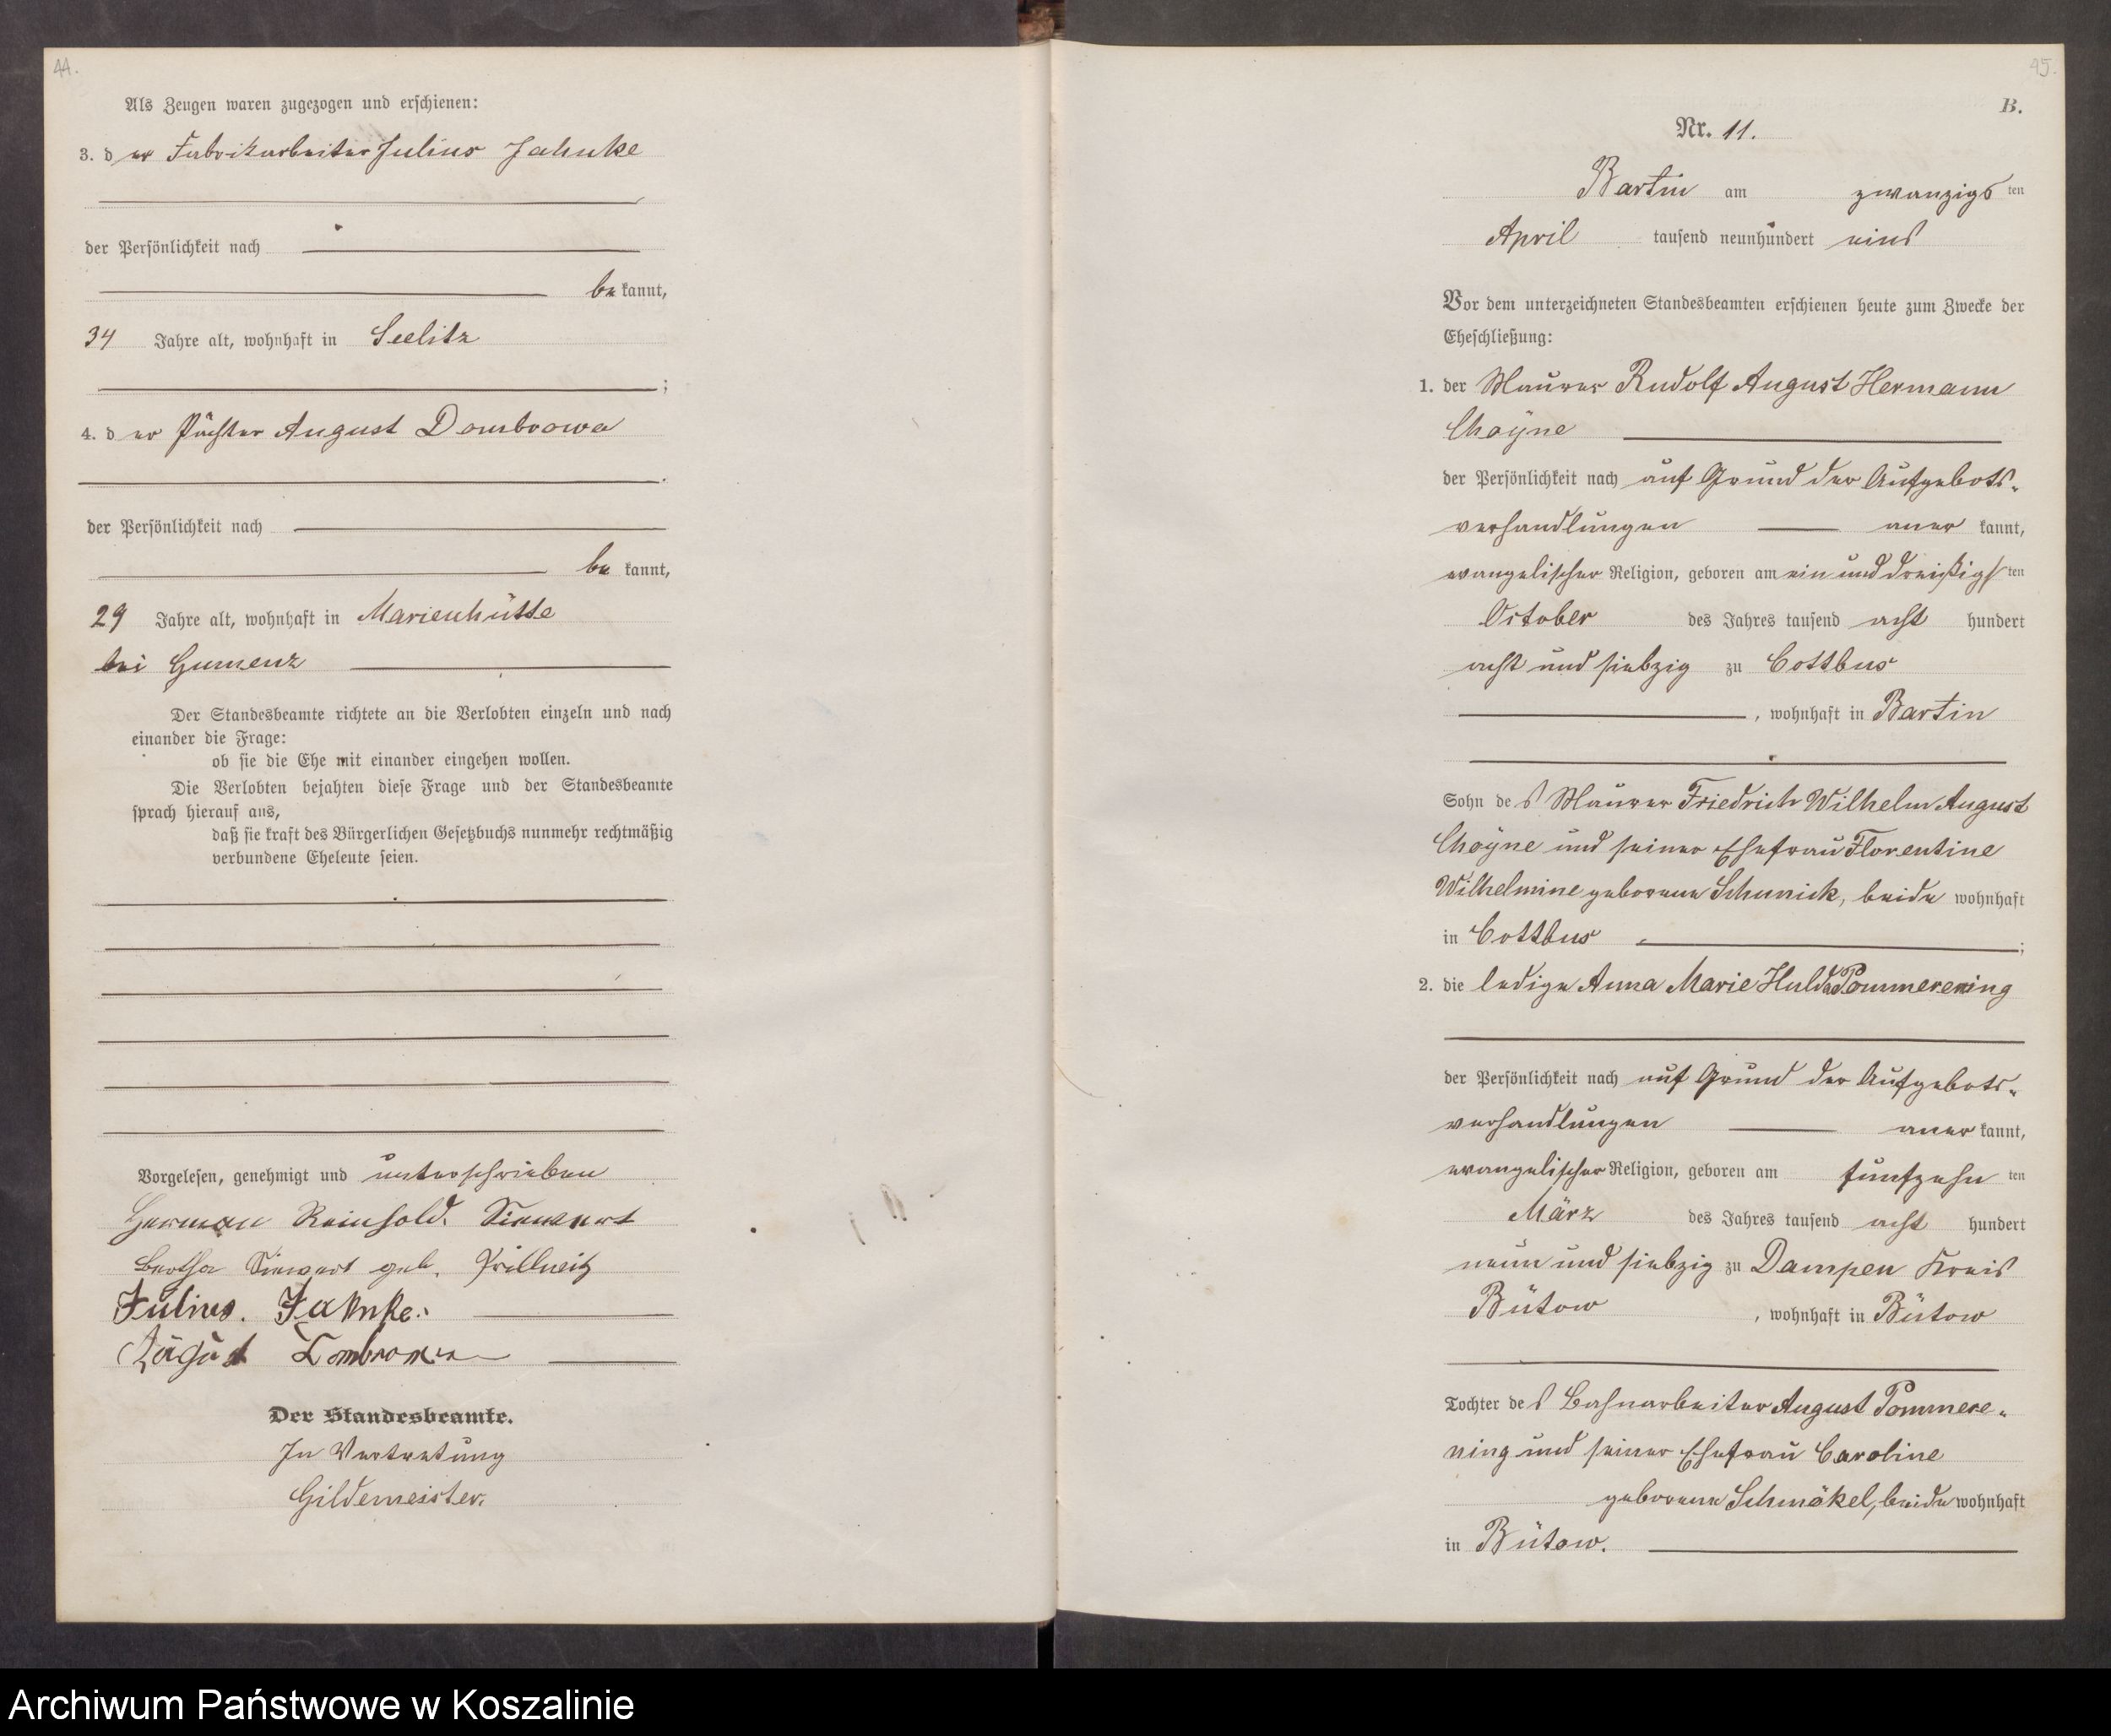 44.
Als Zeugen waren zugezogen und erschienen:
3. der Fabrikarbeiter Julius Jahnke
der Persönlichkeit nach
bekannt,
34 Jahre alt, wohnhaft in Seelitz
;
4. der Pächter August Dombrowa
der Persönlichkeit nach
bekannt,
29 Jahre alt, wohnhaft in Marienhütte
bei Gumenz
Der Standesbeamte richtete an die Verlobten einzeln und nach
einander die Frage:
ob sie die Ehe mit einander eingehen wollen.
Die Verlobten bejahten diese Frage und der Standesbeamte
sprach hierauf aus,
daß sie kraft des Bürgerlichen Gesetzbuchs nunmehr rechtmäßig
verbundene Eheleute seien.
Vorgelesen, genehmigt und unterschrieben
Herman Reinhold. Siewert
Bertha Siewert geb. Prillwitz
Julius. Jahnke.
August Dombrowa
Der Standesbeamte.
In Vertretung
Gildemeister.
45.
B.
Nr. 11.
Bartin am zwanzigsten
April tausend neunhundert eins
Vor dem unterzeichneten Standesbeamten erschienen heute zum Zwecke der
Eheschließung:
1. der Maurer Rudolf August Hermann
Choyne
der Persönlichkeit nach auf Grund der Aufgebots-
verhandlungen anerkannt,
evangelischer Religion, geboren am ein und dreißigsten
October des Jahres tausend acht hundert
acht und siebzig zu Cottbus
, wohnhaft in Bartin
Sohn des Maurer Friedrich Wilhelm August
Choyne und seiner Ehefrau Florentine
Wilhelmine geborene Schunick, beide wohnhaft
in Cottbus ;
2. die ledige Anna Marie Hulda Pommerening
der Persönlichkeit nach auf Grund der Aufgebots-
verhandlungen anerkannt,
evangelischer Religion, geboren am fünfzehnten
März des Jahres tausend acht hundert
neun und siebzig zu Dampen Kreis
Bütow , wohnhaft in Bütow
Tochter des Bahnarbeiter August Pommere-
ning und seiner Ehefrau Caroline
geborene Schmökel, beide wohnhaft
in Bütow.
Archiwum Państwowe w Koszalinie